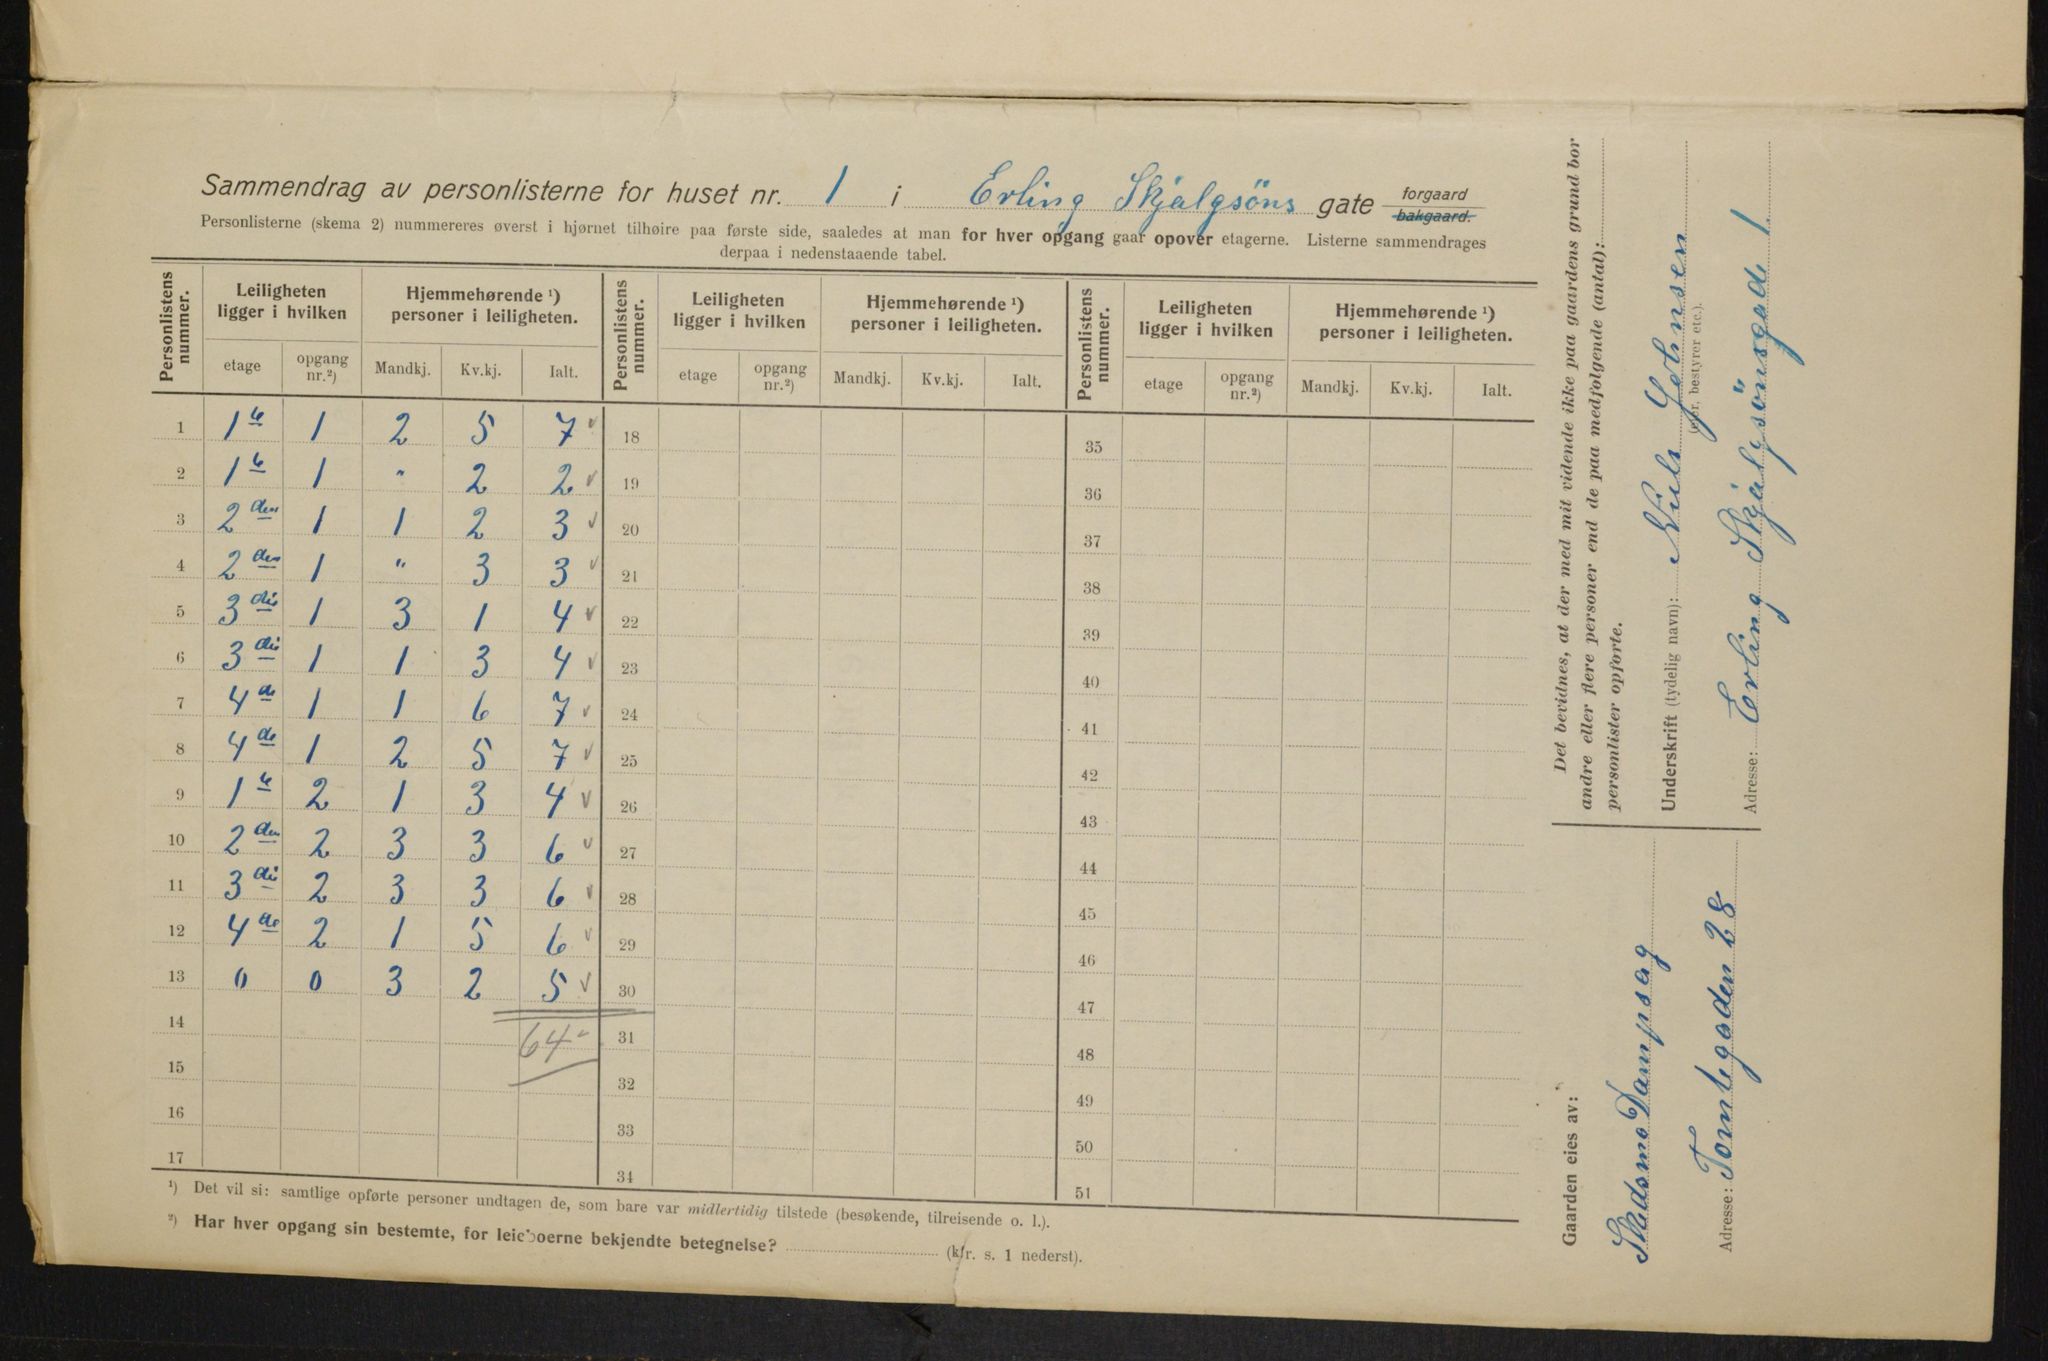 Sammendrag av personlisterne for huset nr. 1 i Erling Skjalgsöns gate forgaard bakgaard.
Personlisterne (skema 2) nummereres øverst i hjørnet tilhøire paa første side, saaledes at man for hver opgang gaar opover etagerne. Listerne sammendrages
derpaa i nedenstaaende tabel.
Personlistens nummer. Leiligheten ligger i hvilken Hjemmehørende ¹) personer i leiligheten. Personlistens nummer. Leiligheten ligger i hvilken Hjemmehørende ¹) personer i leiligheten. Personlistens nummer. Leiligheten ligger i hvilken Hjemmehørende ¹) personer i leiligheten.
etage opgang nr.²) Mandkj. Kv.kj. Ialt. etage opgang nr.²) Mandkj. Kv.kj. Ialt. etage opgang nr.²) Mandkj. Kv.kj. Ialt.
1 1te 1 2 5 7 ✓ 18 35
2 1te 1 " 2 2 ✓ 19 36
3 2den 1 1 2 3 ✓ 20 37
4 2den 1 " 3 3 ✓ 21 38
5 3die 1 3 1 4 ✓ 22 39
6 3die 1 1 3 4 ✓ 23 40
7 4de 1 1 6 7 ✓ 24 41
8 4de 1 2 5 7 ✓ 25 42
9 1te 2 1 3 4 ✓ 26 43
10 2den 2 3 3 6 ✓ 27 44
11 3die 2 3 3 6 ✓ 28 45
12 4de 2 1 5 6 ✓ 29 46
13 0 0 3 2 5 ✓ 30 47
14 64 31 48
15 32 49
16 33 50
17 34 51
¹) Det vil si: samtlige opførte personer undtagen de, som bare var midlertidig tilstede (besøkende, tilreisende o. l.).
²) Har hver opgang sin bestemte, for leieboerne bekjendte betegnelse? (kfr. s. 1 nederst).
Det bevidnes, at der med mit vidende ikke paa gaardens grund bor
andre eller flere personer end de paa medfølgende (antal):
personlister opførte.
Underskrift (tydelig navn): Nils Johnsen
(eier, bestyrer etc.).
Adresse: Erling Skjalgsönsgade 1.
Gaarden eies av:
Skedsmo Dampsag
Adresse: Tomtegaden 28